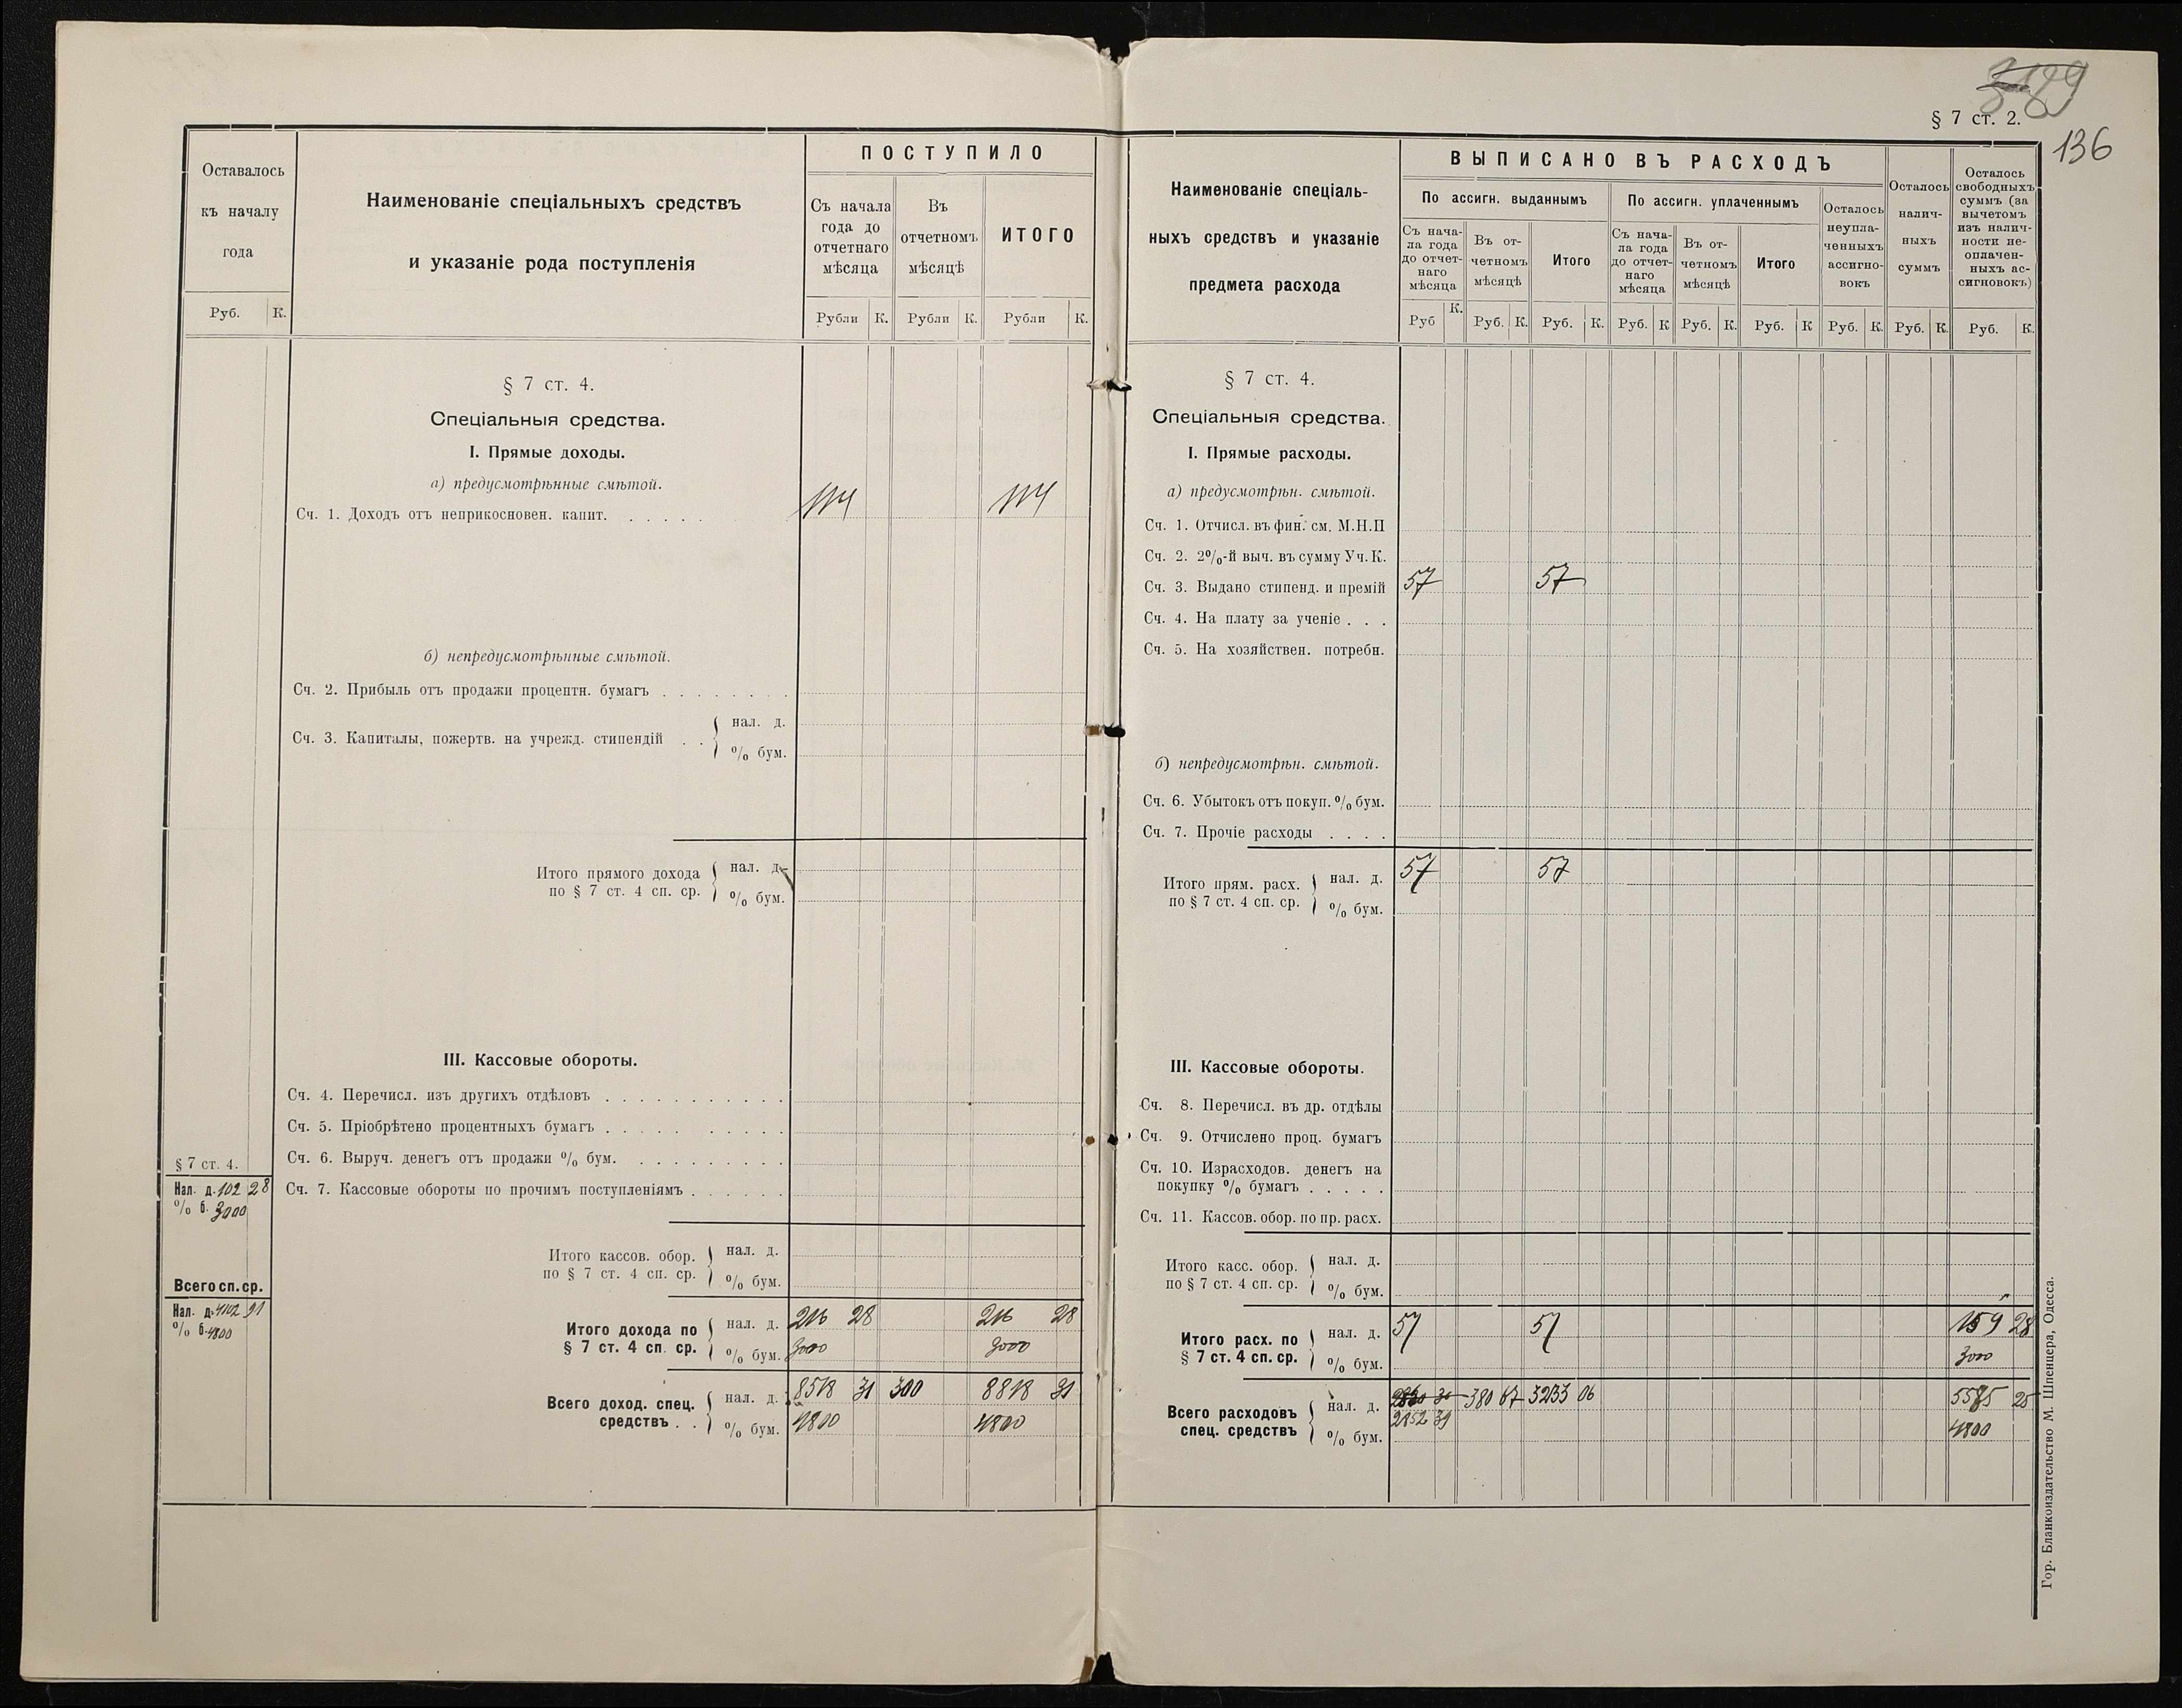 § 7 ст. 2.
136
Оставалось
къ началу
года
Руб. К.
Наименованіе спеціальныхъ средствъ
и указаніе рода поступленія
ПОСТУПИЛО
Съ начала
года до
отчетнаго
мѣсяца
Въ
отчетномъ
мѣсяцѣ
ИТОГО
Рубли К. Рубли К. Рубли К.
§ 7 ст. 4.
Спеціальныя средства.
I. Прямые доходы.
а) предусмотрѣнные смѣтой.
Сч. 1. Доходъ отъ неприкосновен. капит. . . . . . 114 114
б) непредусмотрѣнные смѣтой.
Сч. 2. Прибыль отъ продажи процентн. бумагъ . . . . . . . .
Сч. 3. Капиталы, пожертв. на учрежд. стипендій . . { нал. д.
% бум.
Итого прямого дохода { нал. д.
по § 7 ст. 4 сп. ср. % бум.
III. Кассовые обороты.
Сч. 4. Перечисл. изъ другихъ отдѣловъ . . . . . . . . . . .
Сч. 5. Пріобрѣтено процентныхъ бумагъ . . . . . . . . . .
Сч. 6. Выруч. денегъ отъ продажи % бум. . . . . . . . . .
Сч. 7. Кассовые обороты по прочимъ поступленіямъ . . . . . .
§ 7 ст. 4.
Нал. д. 102 28
% б. 3000
Всего сп. ср.
Нал. д. 4102 91
% б. 4800
Итого кассов. обор. { нал. д.
по § 7 ст. 4 сп. ср. % бум.
Итого дохода по { нал. д. 216 28 216 28
§ 7 ст. 4 сп. ср. % бум. 3000 3000
Всего доход. спец. { нал. д. 8518 31 300 8818 31
средствъ . . % бум. 4800 4800
Наименованіе спеціаль-
ныхъ средствъ и указаніе
предмета расхода
ВЫПИСАНО ВЪ РАСХОДЪ
По ассигн. выданнымъ
По ассигн. уплаченнымъ
Съ нача-
ла года
до отчет-
наго
мѣсяца
Въ от-
четномъ
мѣсяцѣ
Итого
Съ нача-
ла года
до отчет-
наго
мѣсяца
Въ от-
четномъ
мѣсяцѣ
Итого
Осталось
неупла-
ченныхъ
ассигно-
вокъ
Осталось
налич-
ныхъ
суммъ
Осталось
свободныхъ
суммъ (за
вычетомъ
изъ налич-
ности не-
оплачен-
ныхъ ас-
сигновокъ)
Руб К. Руб. К. Руб. К. Руб. К Руб. К. Руб. К Руб. К. Руб. К. Руб. К.
§ 7 ст. 4.
Спеціальныя средства.
I. Прямые расходы.
а) предусмотрѣн. смѣтой.
Сч. 1. Отчисл. въ фин. см. М.Н.П
Сч. 2. 2%-й выч. въ сумму Уч. К.
Сч. 3. Выдано стипенд. и премій 57 57
Сч. 4. На плату за ученіе . . .
Сч. 5. На хозяйствен. потребн.
б) непредусмотрѣн. смѣтой.
Сч. 6. Убытокъ отъ покуп. % бум.
Сч. 7. Прочіе расходы . . . .
Итого прям. расх. { нал. д. 57 57
по § 7 ст. 4 сп. ср. % бум.
III. Кассовые обороты.
Сч. 8. Перечисл. въ др. отдѣлы
Сч. 9. Отчислено проц. бумагъ
Сч. 10. Израсходов. денегъ на
покупку % бумагъ . . . . .
Сч. 11. Кассов. обор. по пр. расх.
Итого касс. обор. { нал. д.
по § 7 ст. 4 сп. ср. % бум.
Итого расх. по { нал. д. 57 57 159 28
§ 7 ст. 4 сп. ср. % бум. 3000
Всего расходовъ { нал. д. 2852 39 380 67 3233 06 5585 25
спец. средствъ % бум. 4800
Гор. Бланкоиздательство М. Шпенцера, Одесса.